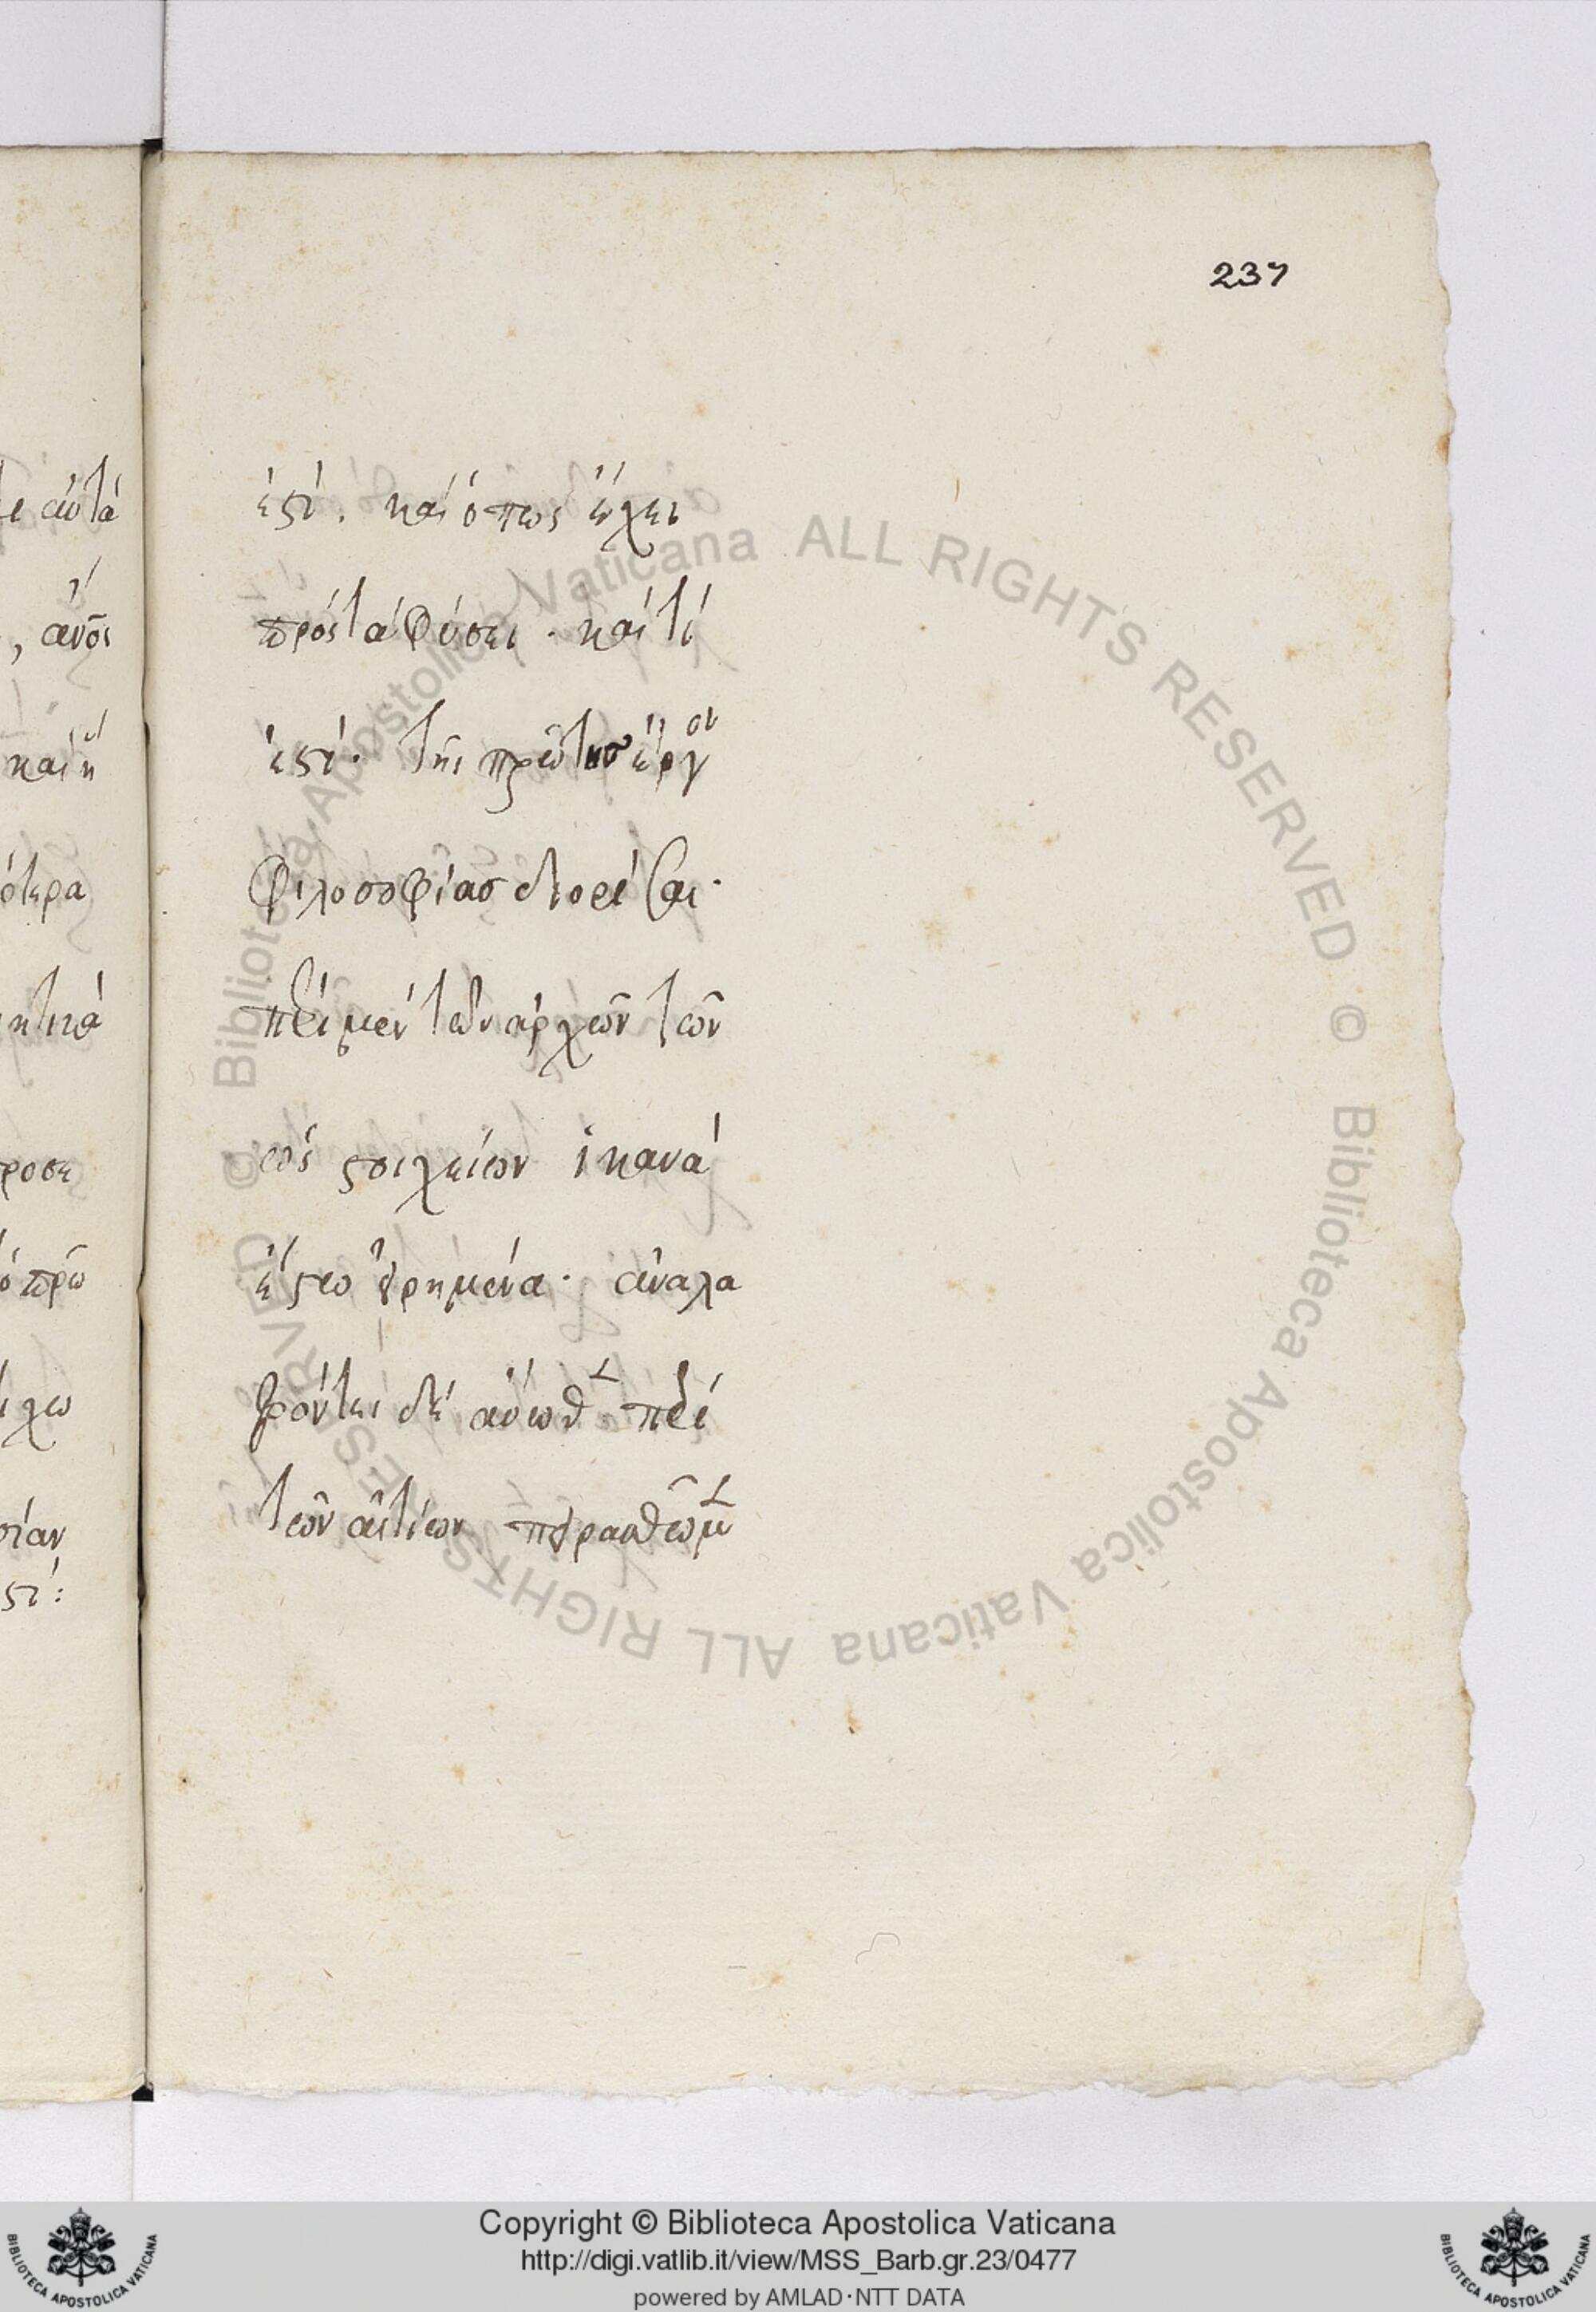 237
ἐστί. καὶ ὅπως ἔχει
πρὸς τὰ φύσει. καὶ τί
ἐστί. τῆς πρώτησ ἔργον
φιλοσοφίασ διορίσαι.
περὶ μὲν τῶν ἀρχῶν τῶν
ὡς στοιχείων ἱκανὰ
ἔστω εἰρημένα. ἀναλα
βόντες δὲ ἄνωθεν περὶ
τῶν αἰτίων
ε αὐτὰ
, ανος
καὶ ἡ
ότερα
ητικὰ
ροσε
ό πρω
ιχω
σίαν
στί:
Biblioteca Apostolica Vaticana ALL RIGHTS RESERVED © Biblioteca Apostolica Vaticana ALL RIGHTS RESERVED ©
Copyright © Biblioteca Apostolica Vaticana
http://digi.vatlib.it/view/MSS_Barb.gr.23/0477
powered by AMLAD·NTT DATA
BIBLIOTECA APOSTOLICA VATICANA
BIBLIOTECA APOSTOLICA VATICANA